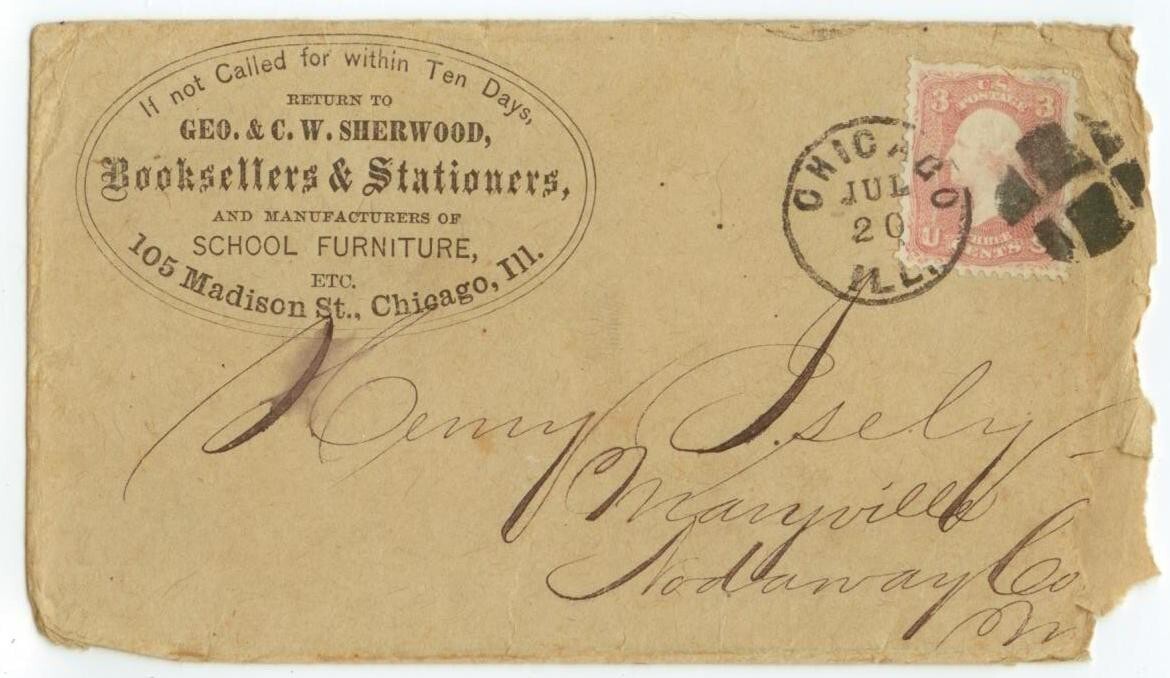 If not Called for within Ten Days,
RETURN TO
GEO. & C. W. SHERWOOD,
Booksellers & Stationers,
AND MANUFACTURERS OF
SCHOOL FURNITURE,
ETC.
105 Madison St., Chicago, Ill.
U.S.
POSTAGE
3 3
U
CENTS
CHICAGO
JUL
20
ILL.
Henry Isely
Maryville
Nodaway Co
M